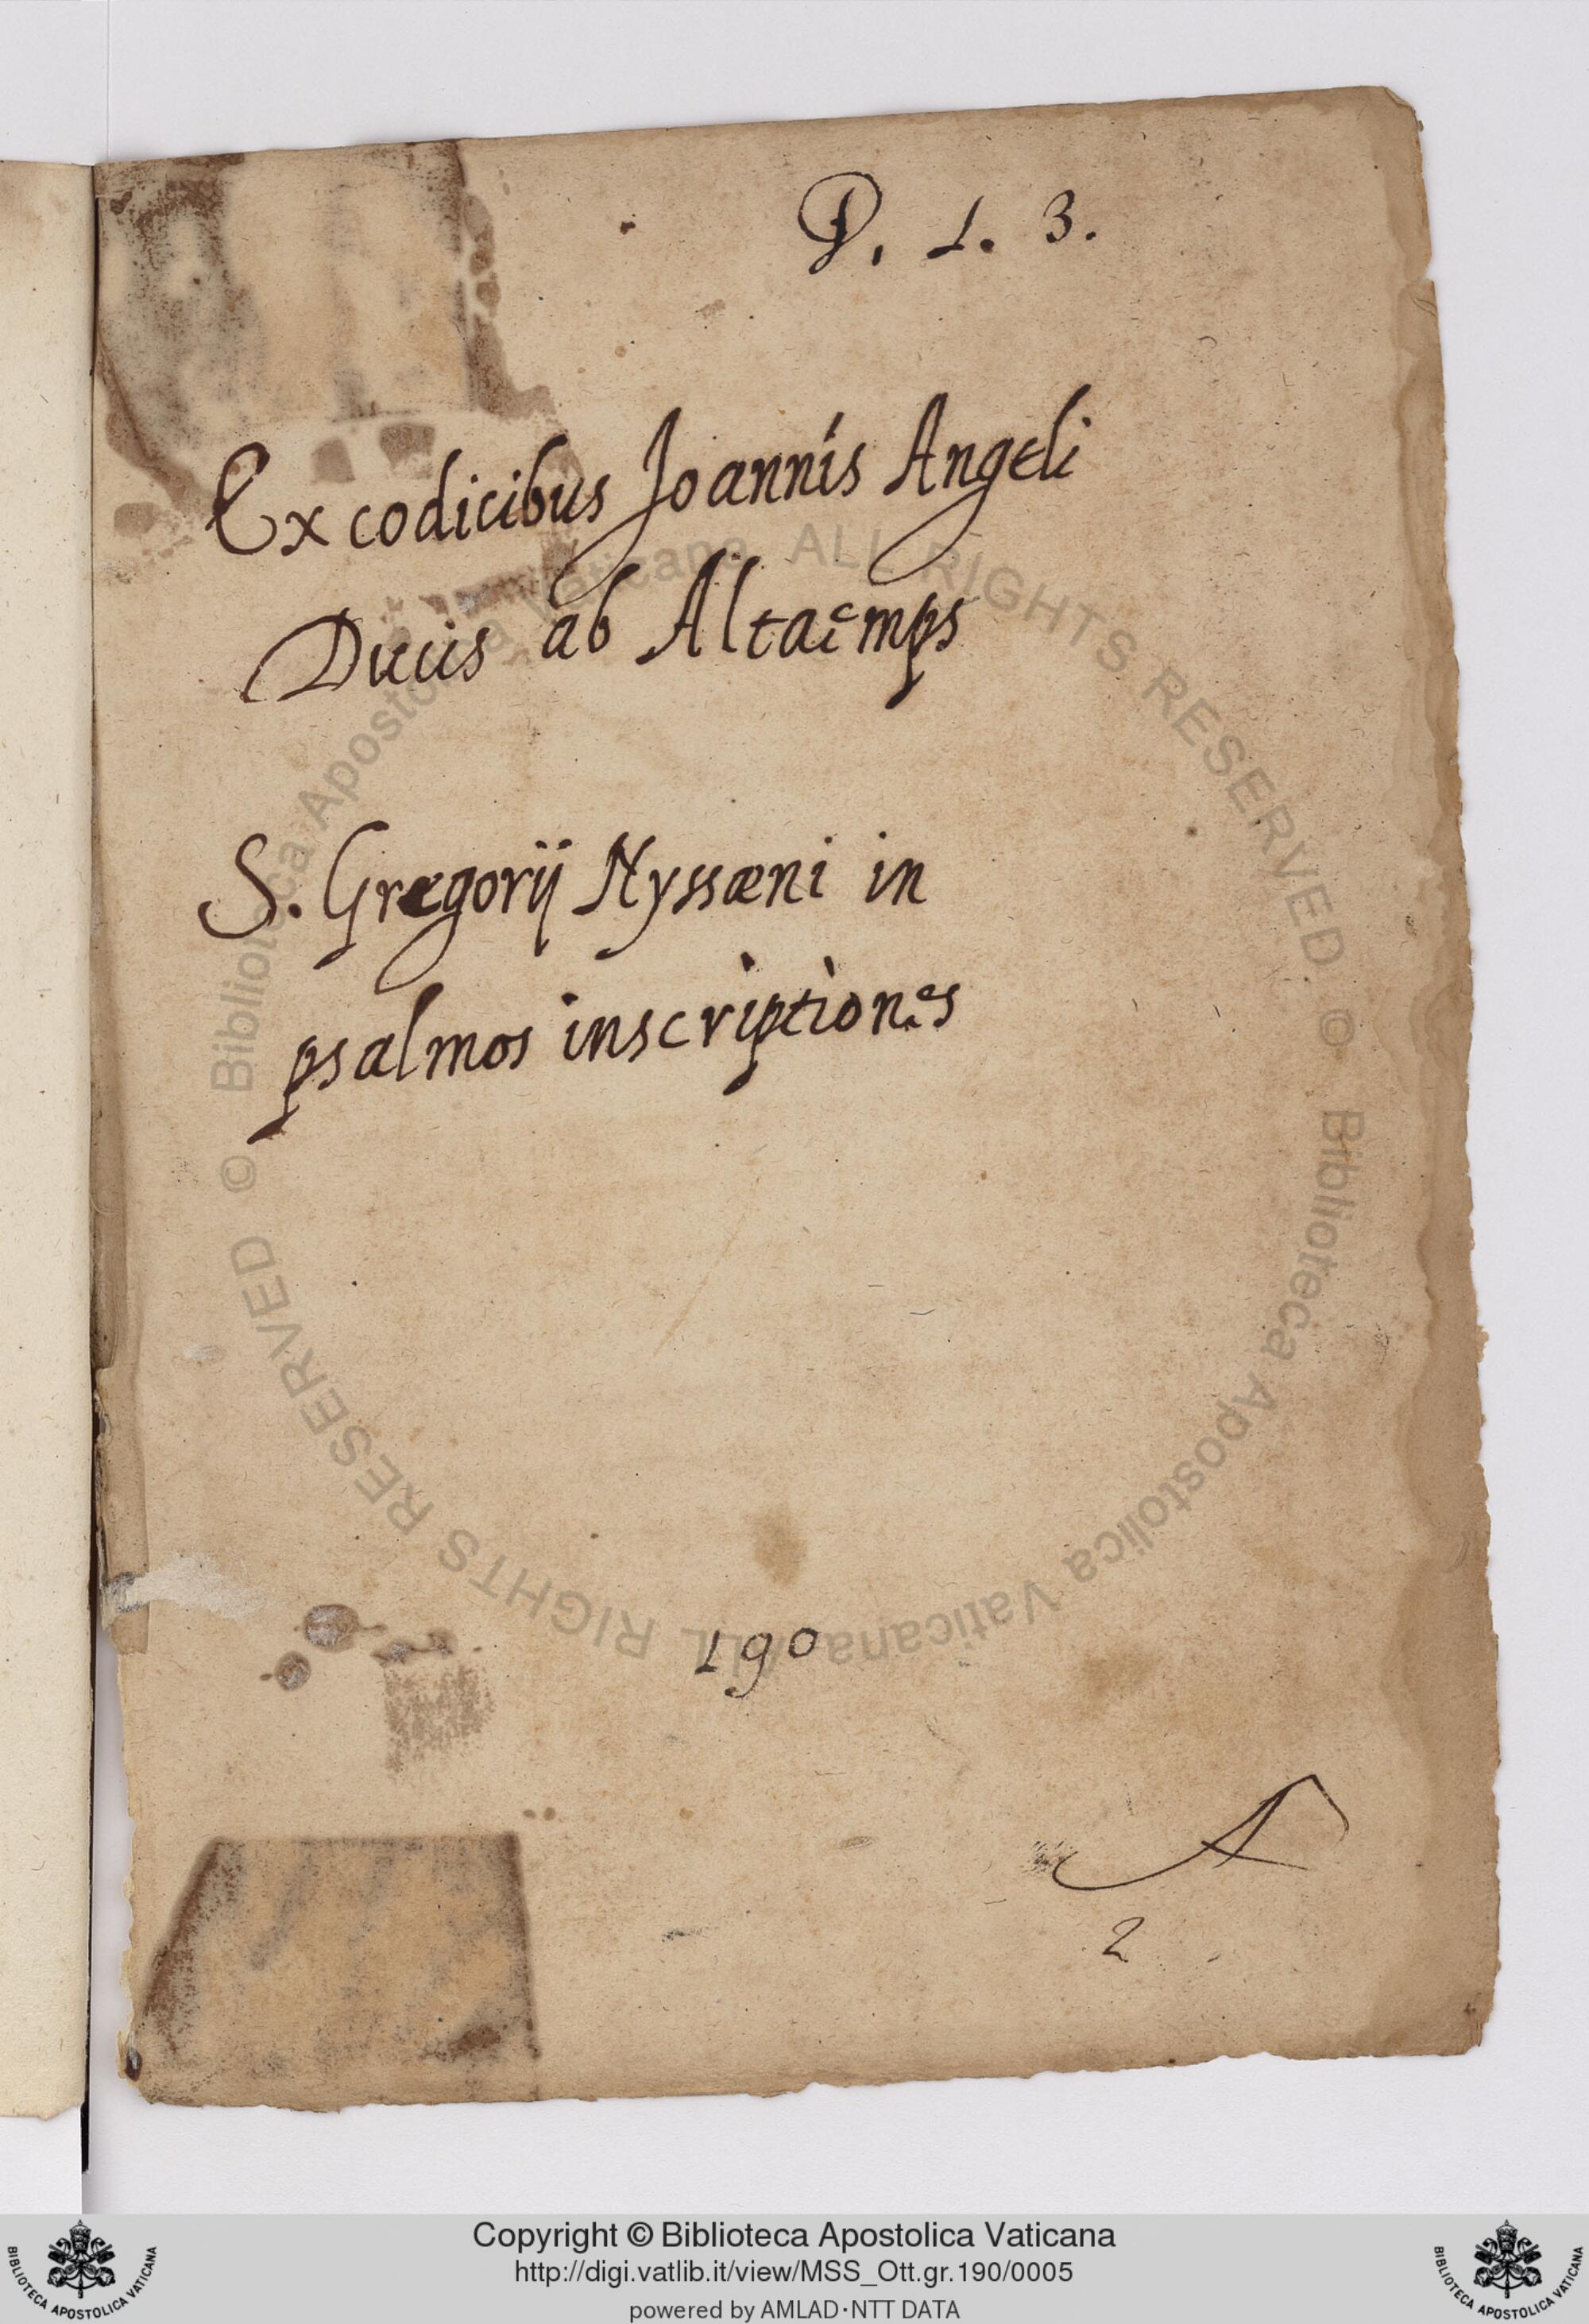 D. 1. 3.
Ex codicibus Joannis Angeli
Ducis ab Altaemps
S. Gregorij Nyssæni in
psalmos inscriptiones
190
A
2
© Biblioteca Apostolica Vaticana ALL RIGHTS RESERVED
© Biblioteca Apostolica Vaticana ALL RIGHTS RESERVED
Copyright © Biblioteca Apostolica Vaticana
http://digi.vatlib.it/view/MSS_Ott.gr.190/0005
powered by AMLAD·NTT DATA
BIBLIOTECA APOSTOLICA VATICANA
BIBLIOTECA APOSTOLICA VATICANA